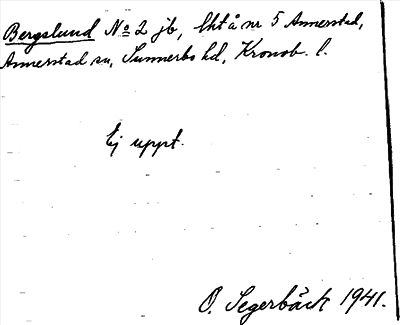 Bergslund No 2 jb, lht å nr 5 Annerstad,
Annerstad sn, Sunnerbo hd, Kronob. l.
Ej uppt.
O. Segerbäck 1941.